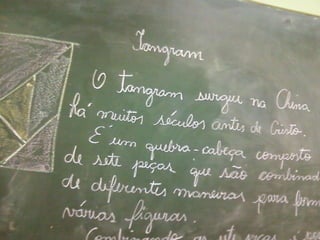 Tangram
O tangram surgiu na China
há muitos séculos antes de Cristo.
É um quebra-cabeça composto
de sete peças que são combinad
de diferentes maneiras para form
várias figuras.
Combinando as sete peças